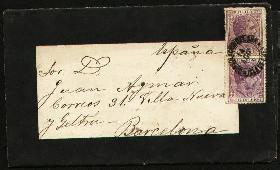 España
Sor. D.
Juan Aymar
Correos 31. Villa Nueva
y Geltru.
Barcelona